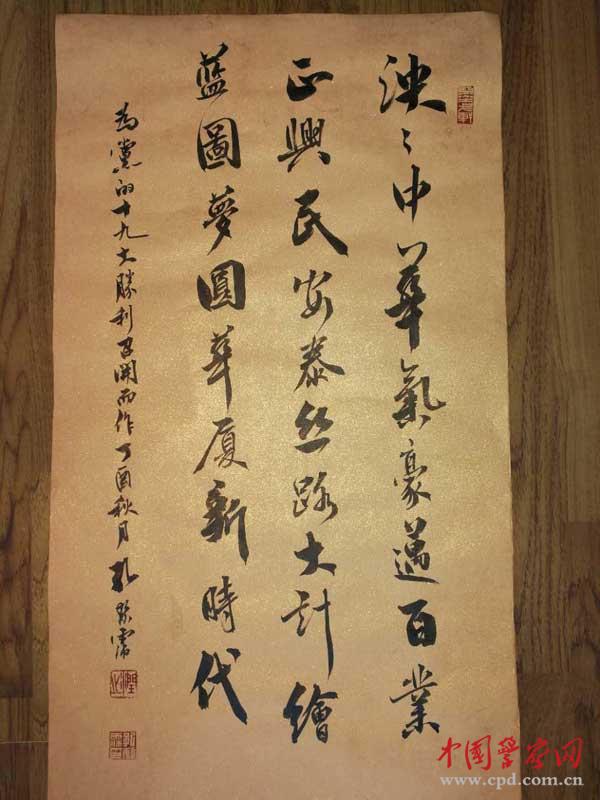 泱〻中華氣豪邁百業
正興民安泰丝路大計繪
藍圖夢圓華厦新時代
為黨的十九大勝利召開而作丁酉秋月孔
中国警察网
www.cpd.com.cn